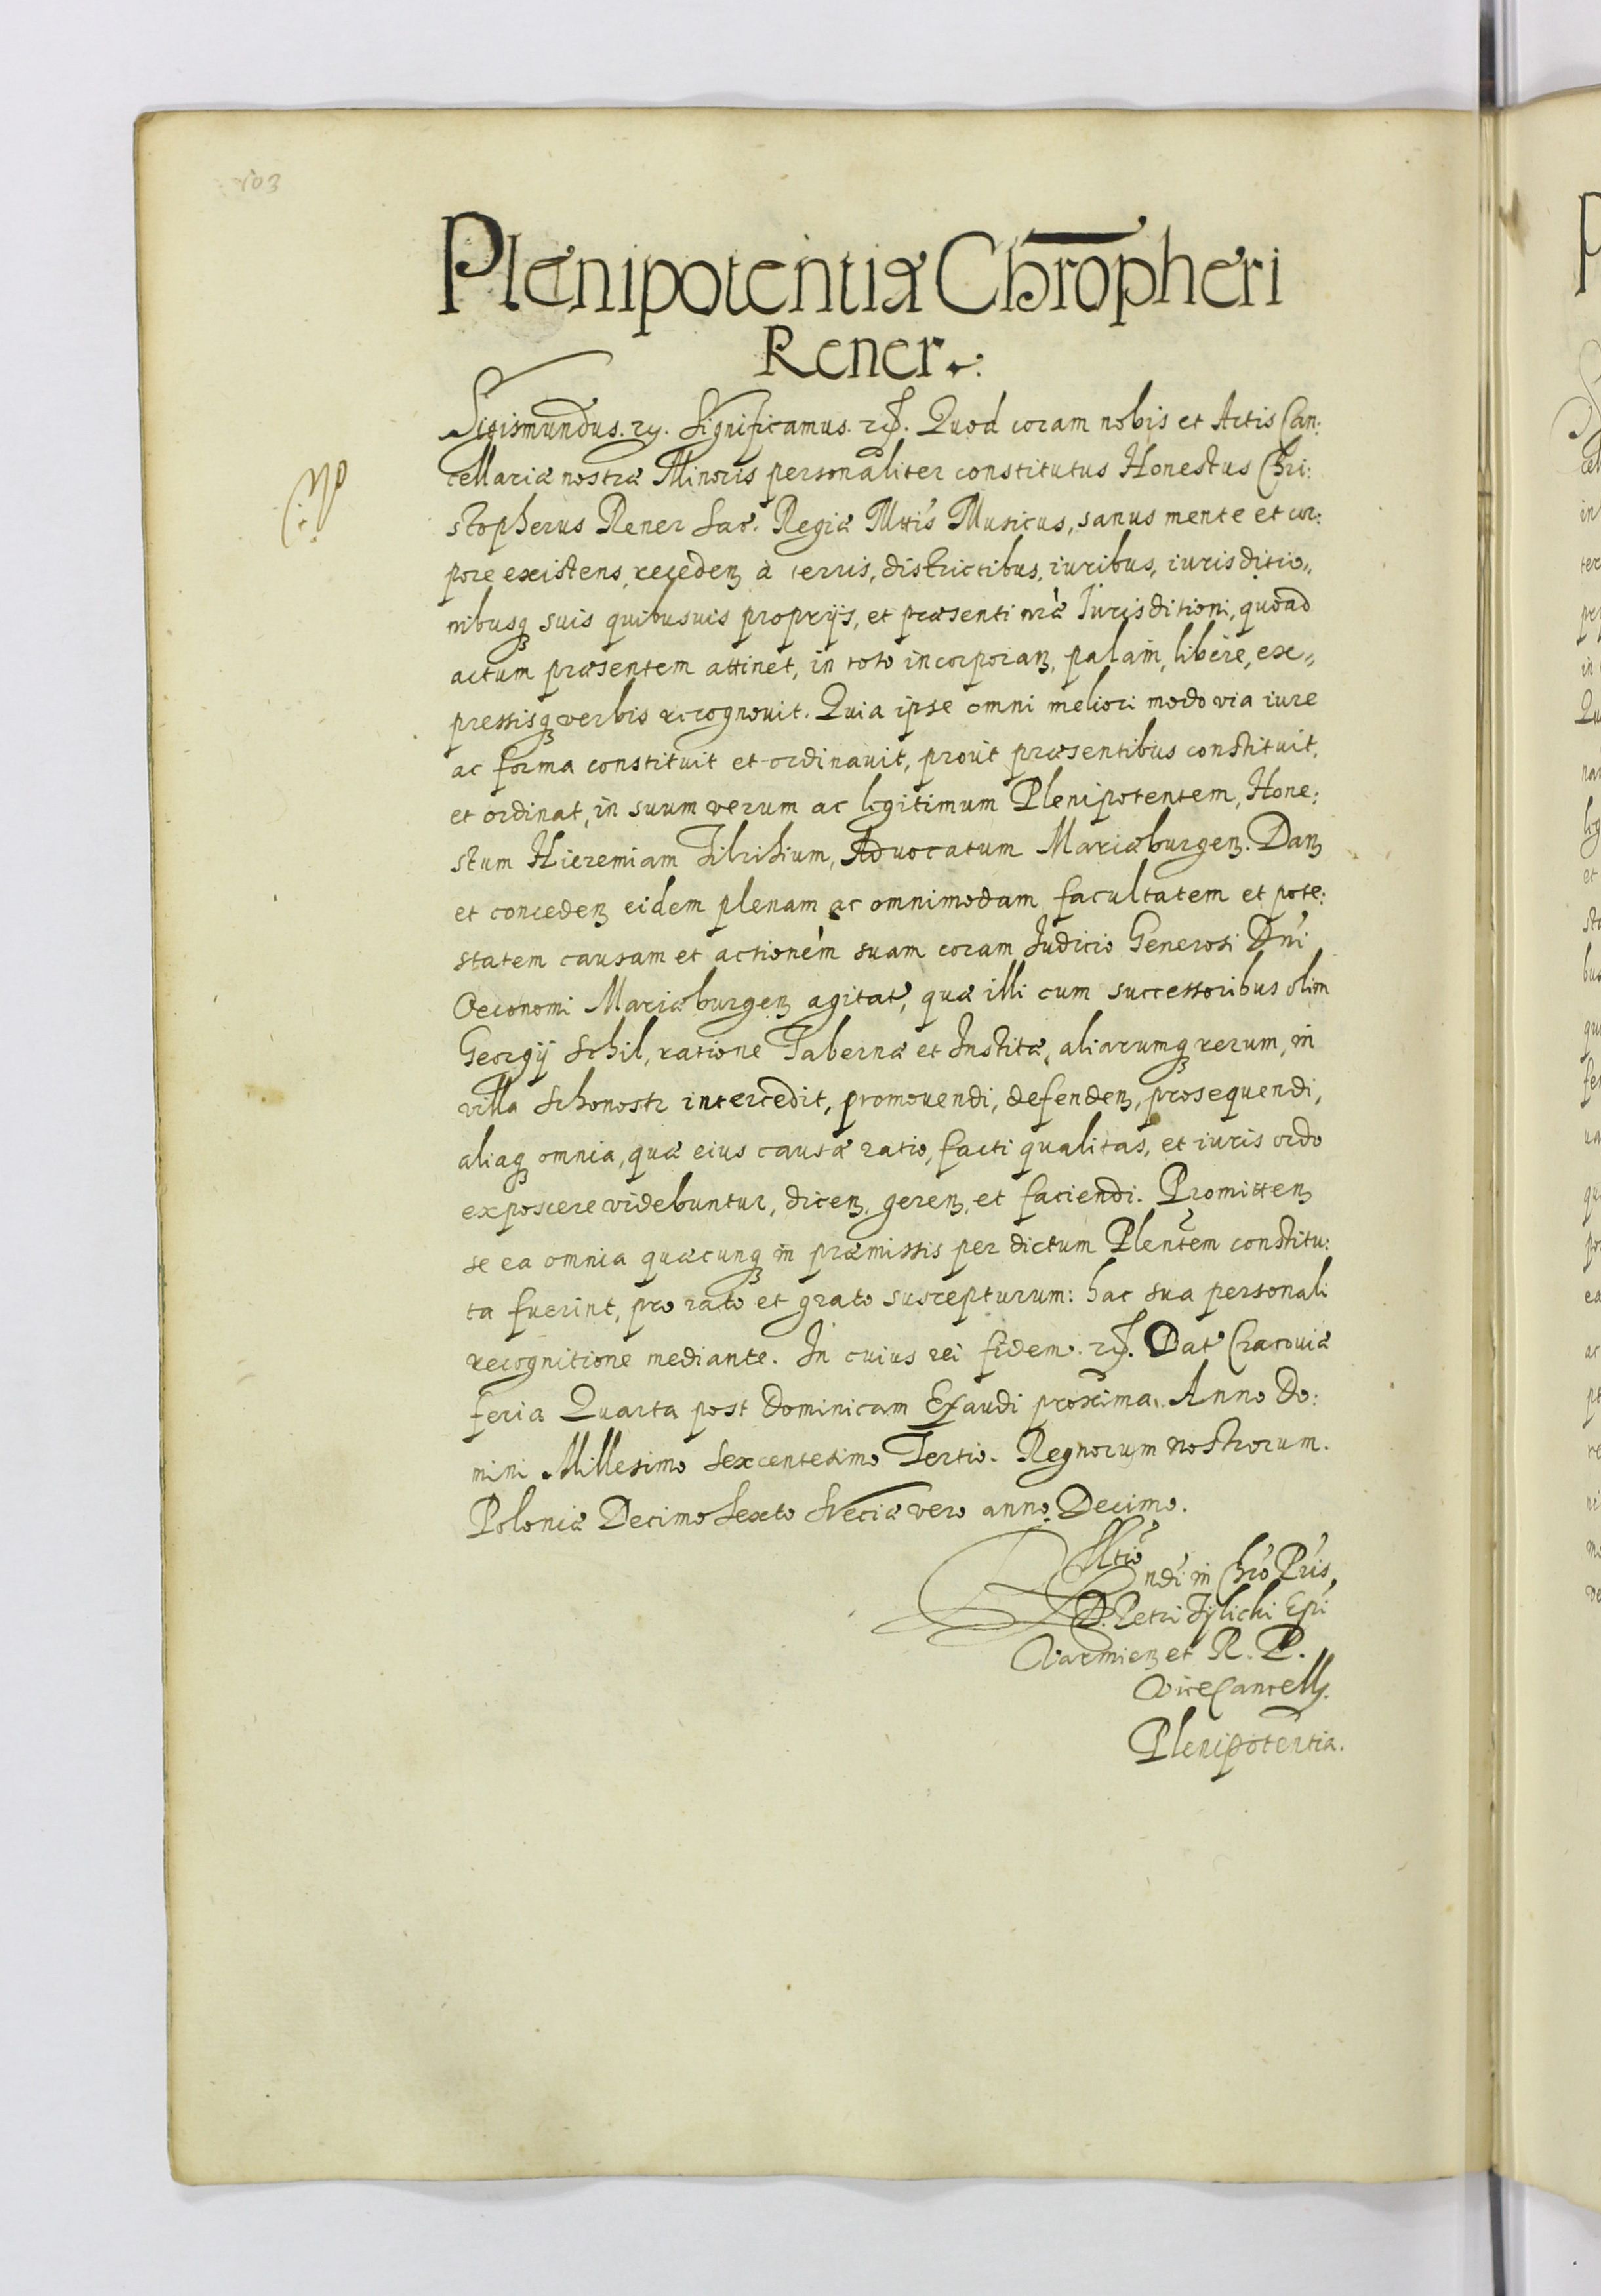 103
Plenipotentia Chr̄opheri
Rener.
Sigismundus. etc. Significamus. etc. Quod coram nobis et Actis Can:
cellariæ nostræ Minoris personaliter constitutus Honestus Chri:
stopherus Rener Sac. Regiæ Mttis Musicus, sanus mente et cor:
pore existens, recedenꝫ à terris, districtibus, iuribus, iurisditio„
nibusqꝫ suis quibusuis proprijs, et præsenti nr̃æ Iurisditioni, quoad
actum præsentem attinet, in toto incorporanꝫ, palàm, libere, ex„
pressisqꝫ verbis recognouit. Quia ipse omni meliori modo via iure
ac forma constituit et ordinauit, prout præsentibus constituit,
et ordinat, in suum verum ac legitimum Plenipotentem, Hone:
stum Hieremiam, Advocatum Mariæburgenꝫ. Danꝫ
et concedenꝫ eidem plenam ac omnimodam facultatem et pote:
statem causam et actionem suam coram Iudicio Generosi Dñi
Oeconomi Mariæburgenꝫ agitat', quæ illi cum successoribus olim
Georgij Schil, ratione Tabernæ et Institæ, aliarumqꝫ rerum, in
villa Schonostr intercedit, promouendi, defendenꝫ, prosequendi,
aliaqꝫ omnia, quæ eius causæ ratio, facti qualitas, et iuris ordo
exposcere videbuntur, dicenꝫ, gerenꝫ, et faciendi. Promittenꝫ
se ea omnia quæcunqꝫ in præmissis per dictum Plen̄tem constitu:
ta fuerint, pro rato et grato suscepturum: hac sua personali
recognitione mediante. In cuius rei fidem. etc. Dat' Cracouiæ
feria Quarta post Dominicam Exaudi proxima. Anno Do:
mini Millesimo Sexcentesimo Tertio. Regnorum nostrorum.
Poloniæ Decimo Sexto Sveciæ vero anno Decimo.
Rltio
Rndi in Chr̃o Pr̃is,
D. Petri Tylicki Epi
Varmienꝫ et R. P.
ViceCancell.
Plenipotentia.